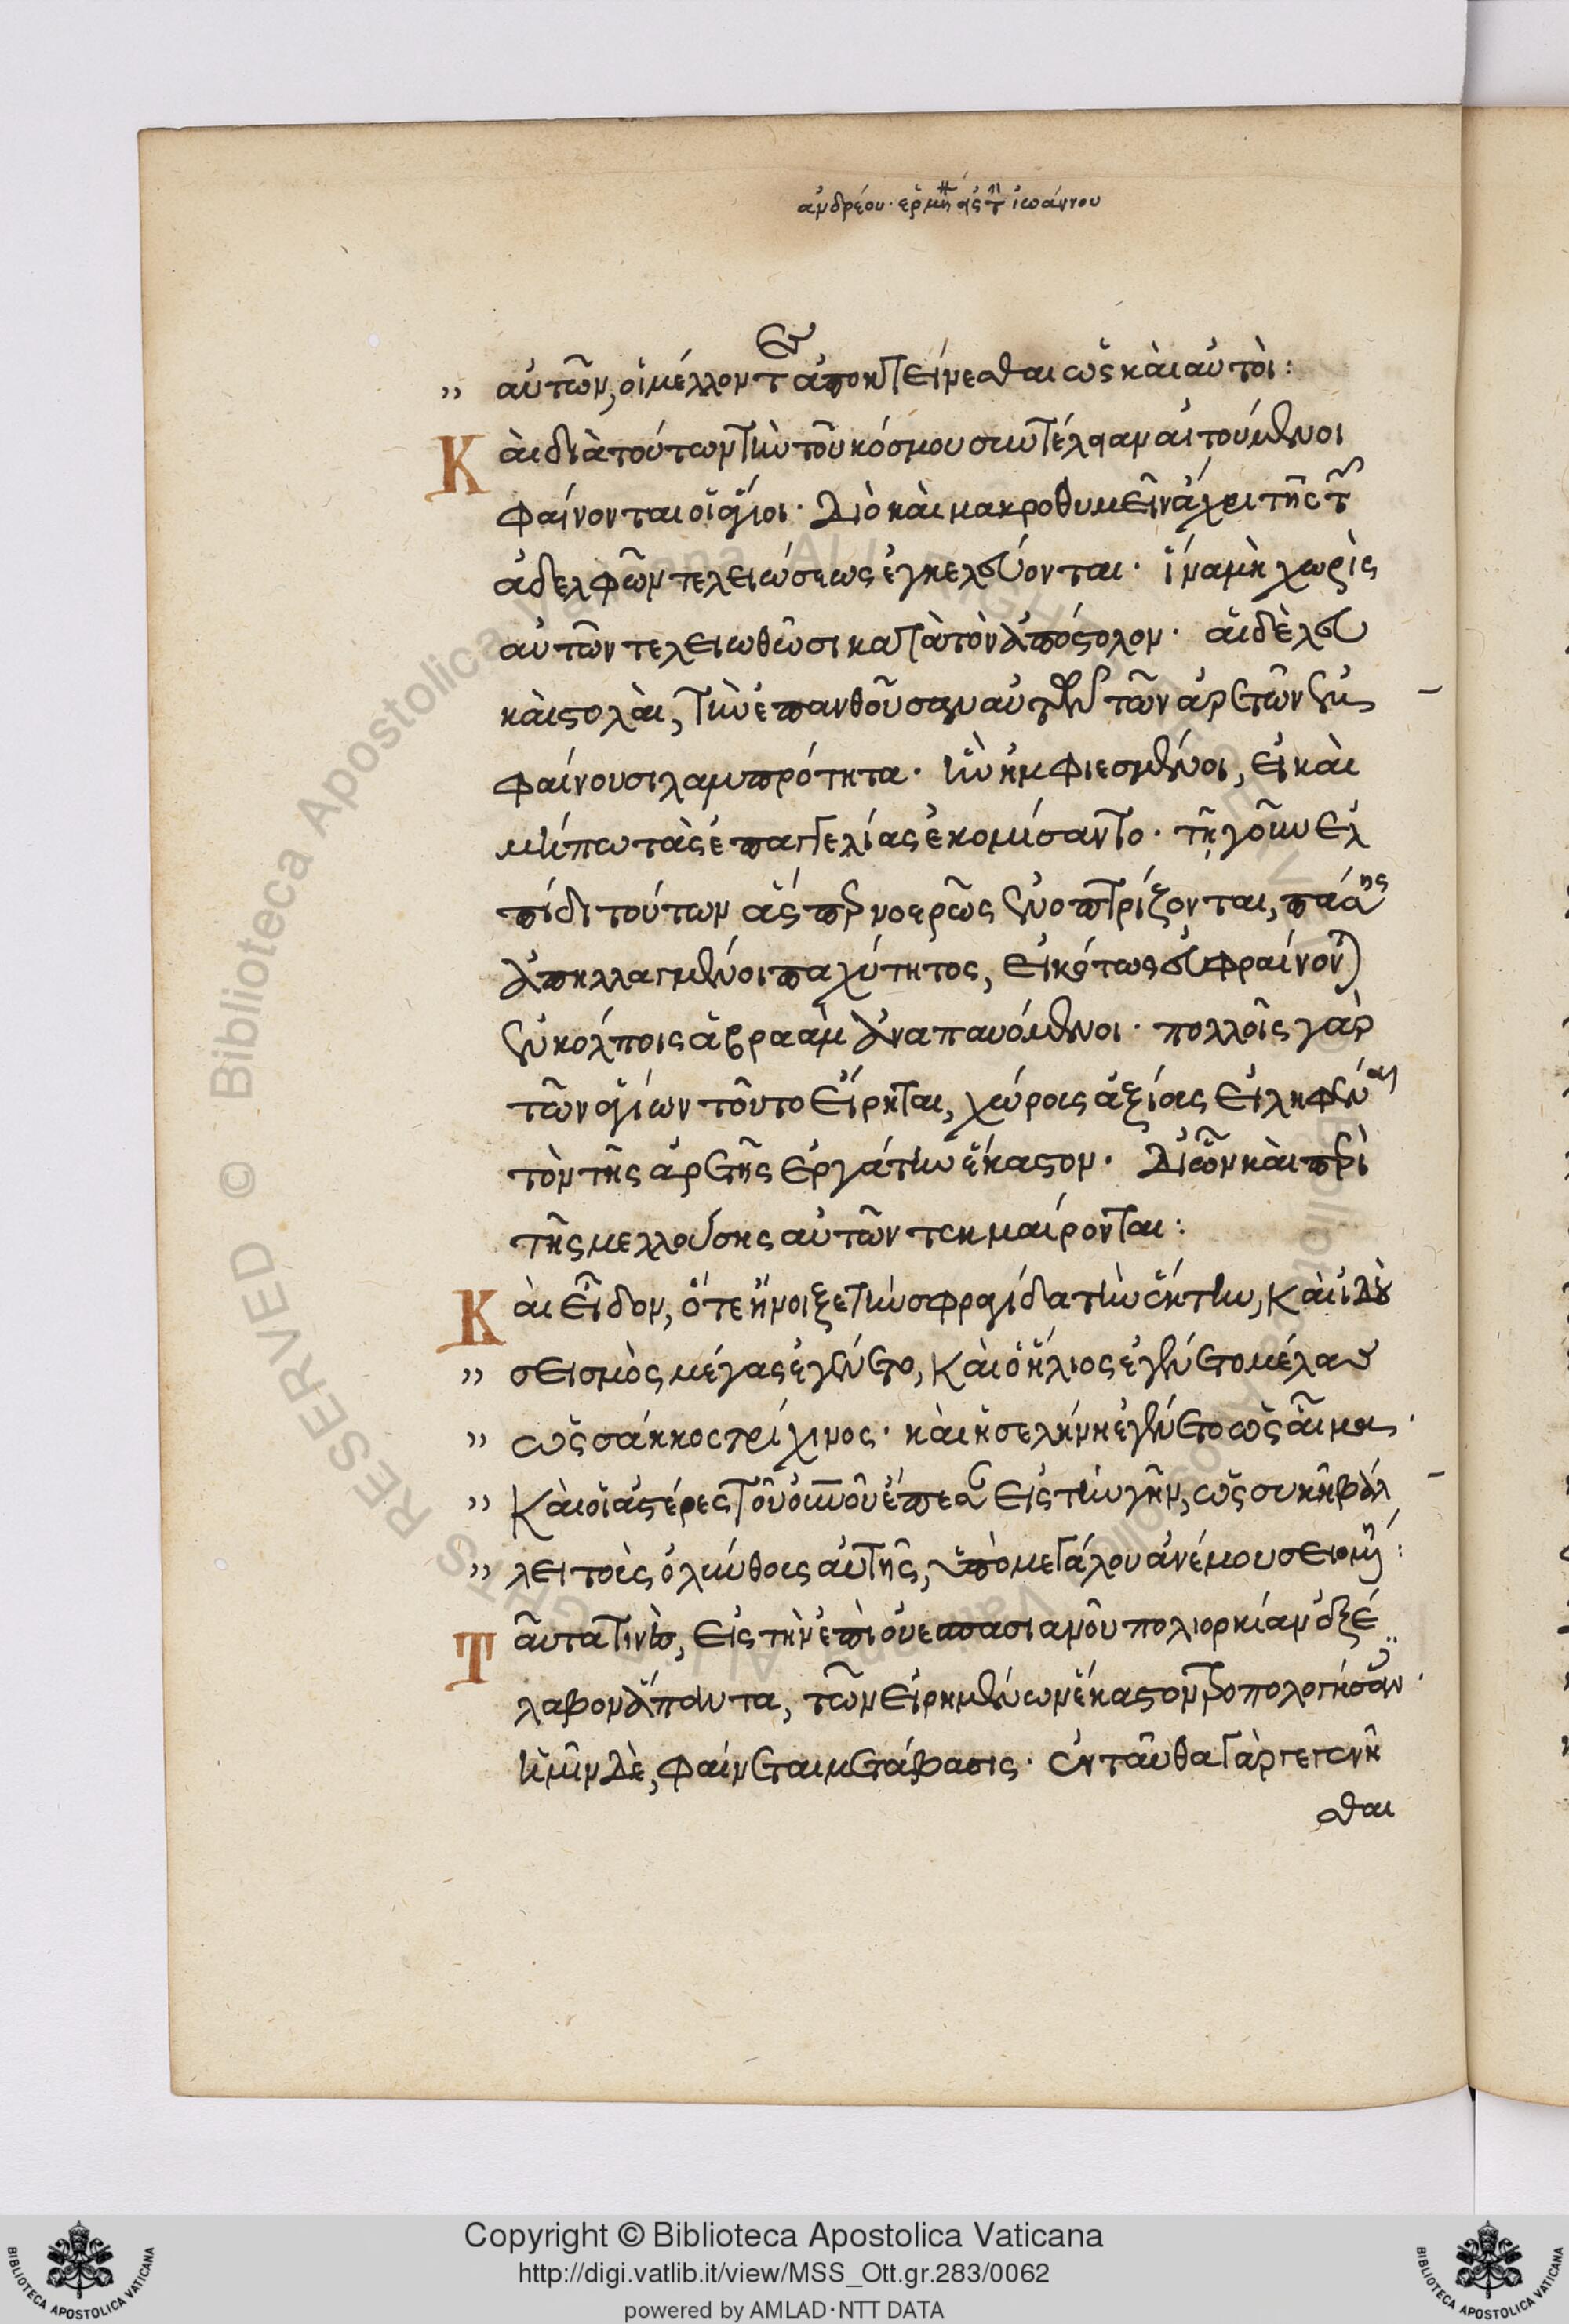 ἀνδρέου· ἑρμη εἰς τ ἰωάννου
αὐτῶν, οἱ μέλλοντες ἀποκτείνεσθαι ὡς καὶ αὐτοὶ:
Καὶ διὰ τούτων τὴν τοῦ κόσμου συντέλειαν αἰτούμενοι
φαίνονται οἱ ἅγιοι· διὸ καὶ μακροθυμεῖν ἄχρι τῆς τῶν
ἀδελφῶν τελειώσεως ἐγκελεύονται· ἵνα μὴ χωρὶς
αὐτῶν τελειωθῶσι κατὰ τὸν ἀπόστολον· αἱ δὲ λευ
καὶ στολαὶ, τὴν ἐπανθοῦσαν αὐτοῖς τῶν ἀρετῶν ἐμ
φαίνουσι λαμπρότητα· ἣν ἠμφιεσμένοι, εἰ καὶ
μήπω τὰς ἐπαγγελίας ἐκομίσαντο· τῇ γοῦν ἐλ
πίδι τούτων ἅσπερ νοερῶς ἐνοπτρίζονται, πάσης
ἀπηλλαγμένοι παχύτητος, εἰκότως εὐφραίνονται
ἐν κόλποις ἀβραὰμ ἀναπαυόμενοι· πολλοῖς γὰρ
τῶν ἁγίων τοῦτο εἴρηται, χώρας ἀξίας εἰληφέναι
τὸν τῆς ἀρετῆς ἐργάτην ἕκαστον· δι' ὧν καὶ περὶ
τῆς μελλούσης αὐτῶν τεκμαίρονται:
Καὶ εἶδον, ὅτε ἤνοιξε τὴν σφραγίδα τὴν ἕκτην, καὶ ἰδοὺ
σεισμὸς μέγας ἐγένετο, καὶ ὁ ἥλιος ἐγένετο μέλας
ὡς σάκκος τρίχινος· καὶ ἡ σελήνη ἐγένετο ὡς αἷμα·
Καὶ οἱ ἀστέρες τοῦ οὐνοῦ ἔπεσον εἰς τὴν γῆν, ὡς συκῆ βάλ
λει τοὺς ὀλύνθους αὐτῆς, ὑπὸ μεγάλου ἀνέμου σειομένη:
Ταῦτα τινὲς, εἰς τὴν ἐπὶ οὐεσπασιανοῦ πολιορκίαν ἐξέ
λαβον ἅπαντα, τῶν εἰρημένων ἕκαστον τροπολογήσαντες·
ἡμῖν δὲ, φαίνεται μετάβασις· ἐνταῦθα γὰρ γεγενῆ
σθαι
Copyright © Biblioteca Apostolica Vaticana
http://digi.vatlib.it/view/MSS_Ott.gr.283/0062
powered by AMLAD·NTT DATA